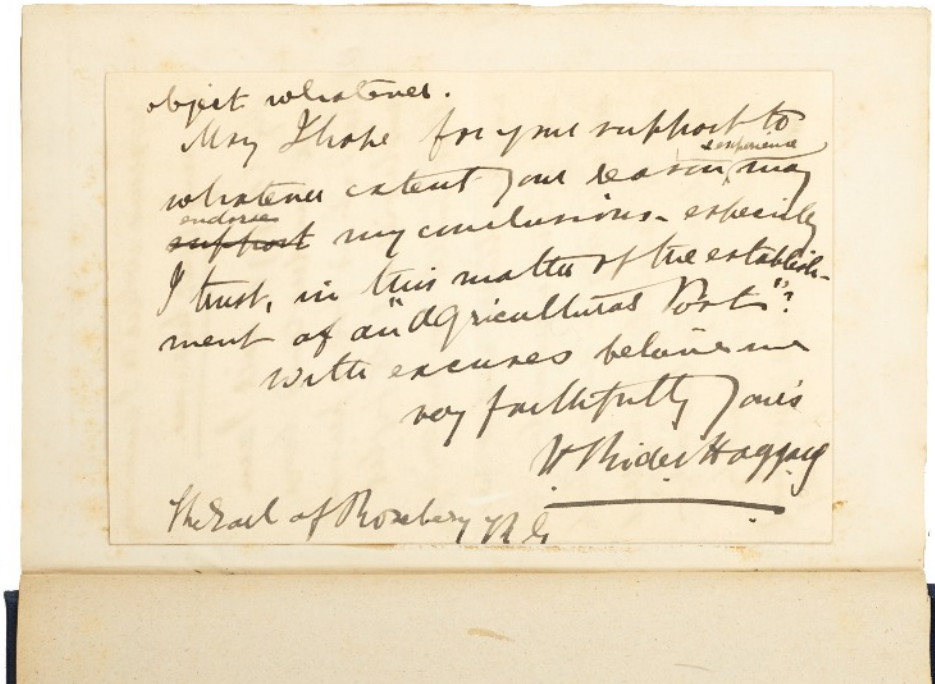 object whatever.
May I hope for your support to
& experience
whatever extent your reason may
endorse
support my conclusions - especially
I trust, in this matter of the establish-
ment of an "Agricultural Post"?
With excuses believe me
very faithfully yours
H. Rider Haggard
The Earl of Rosebery K G